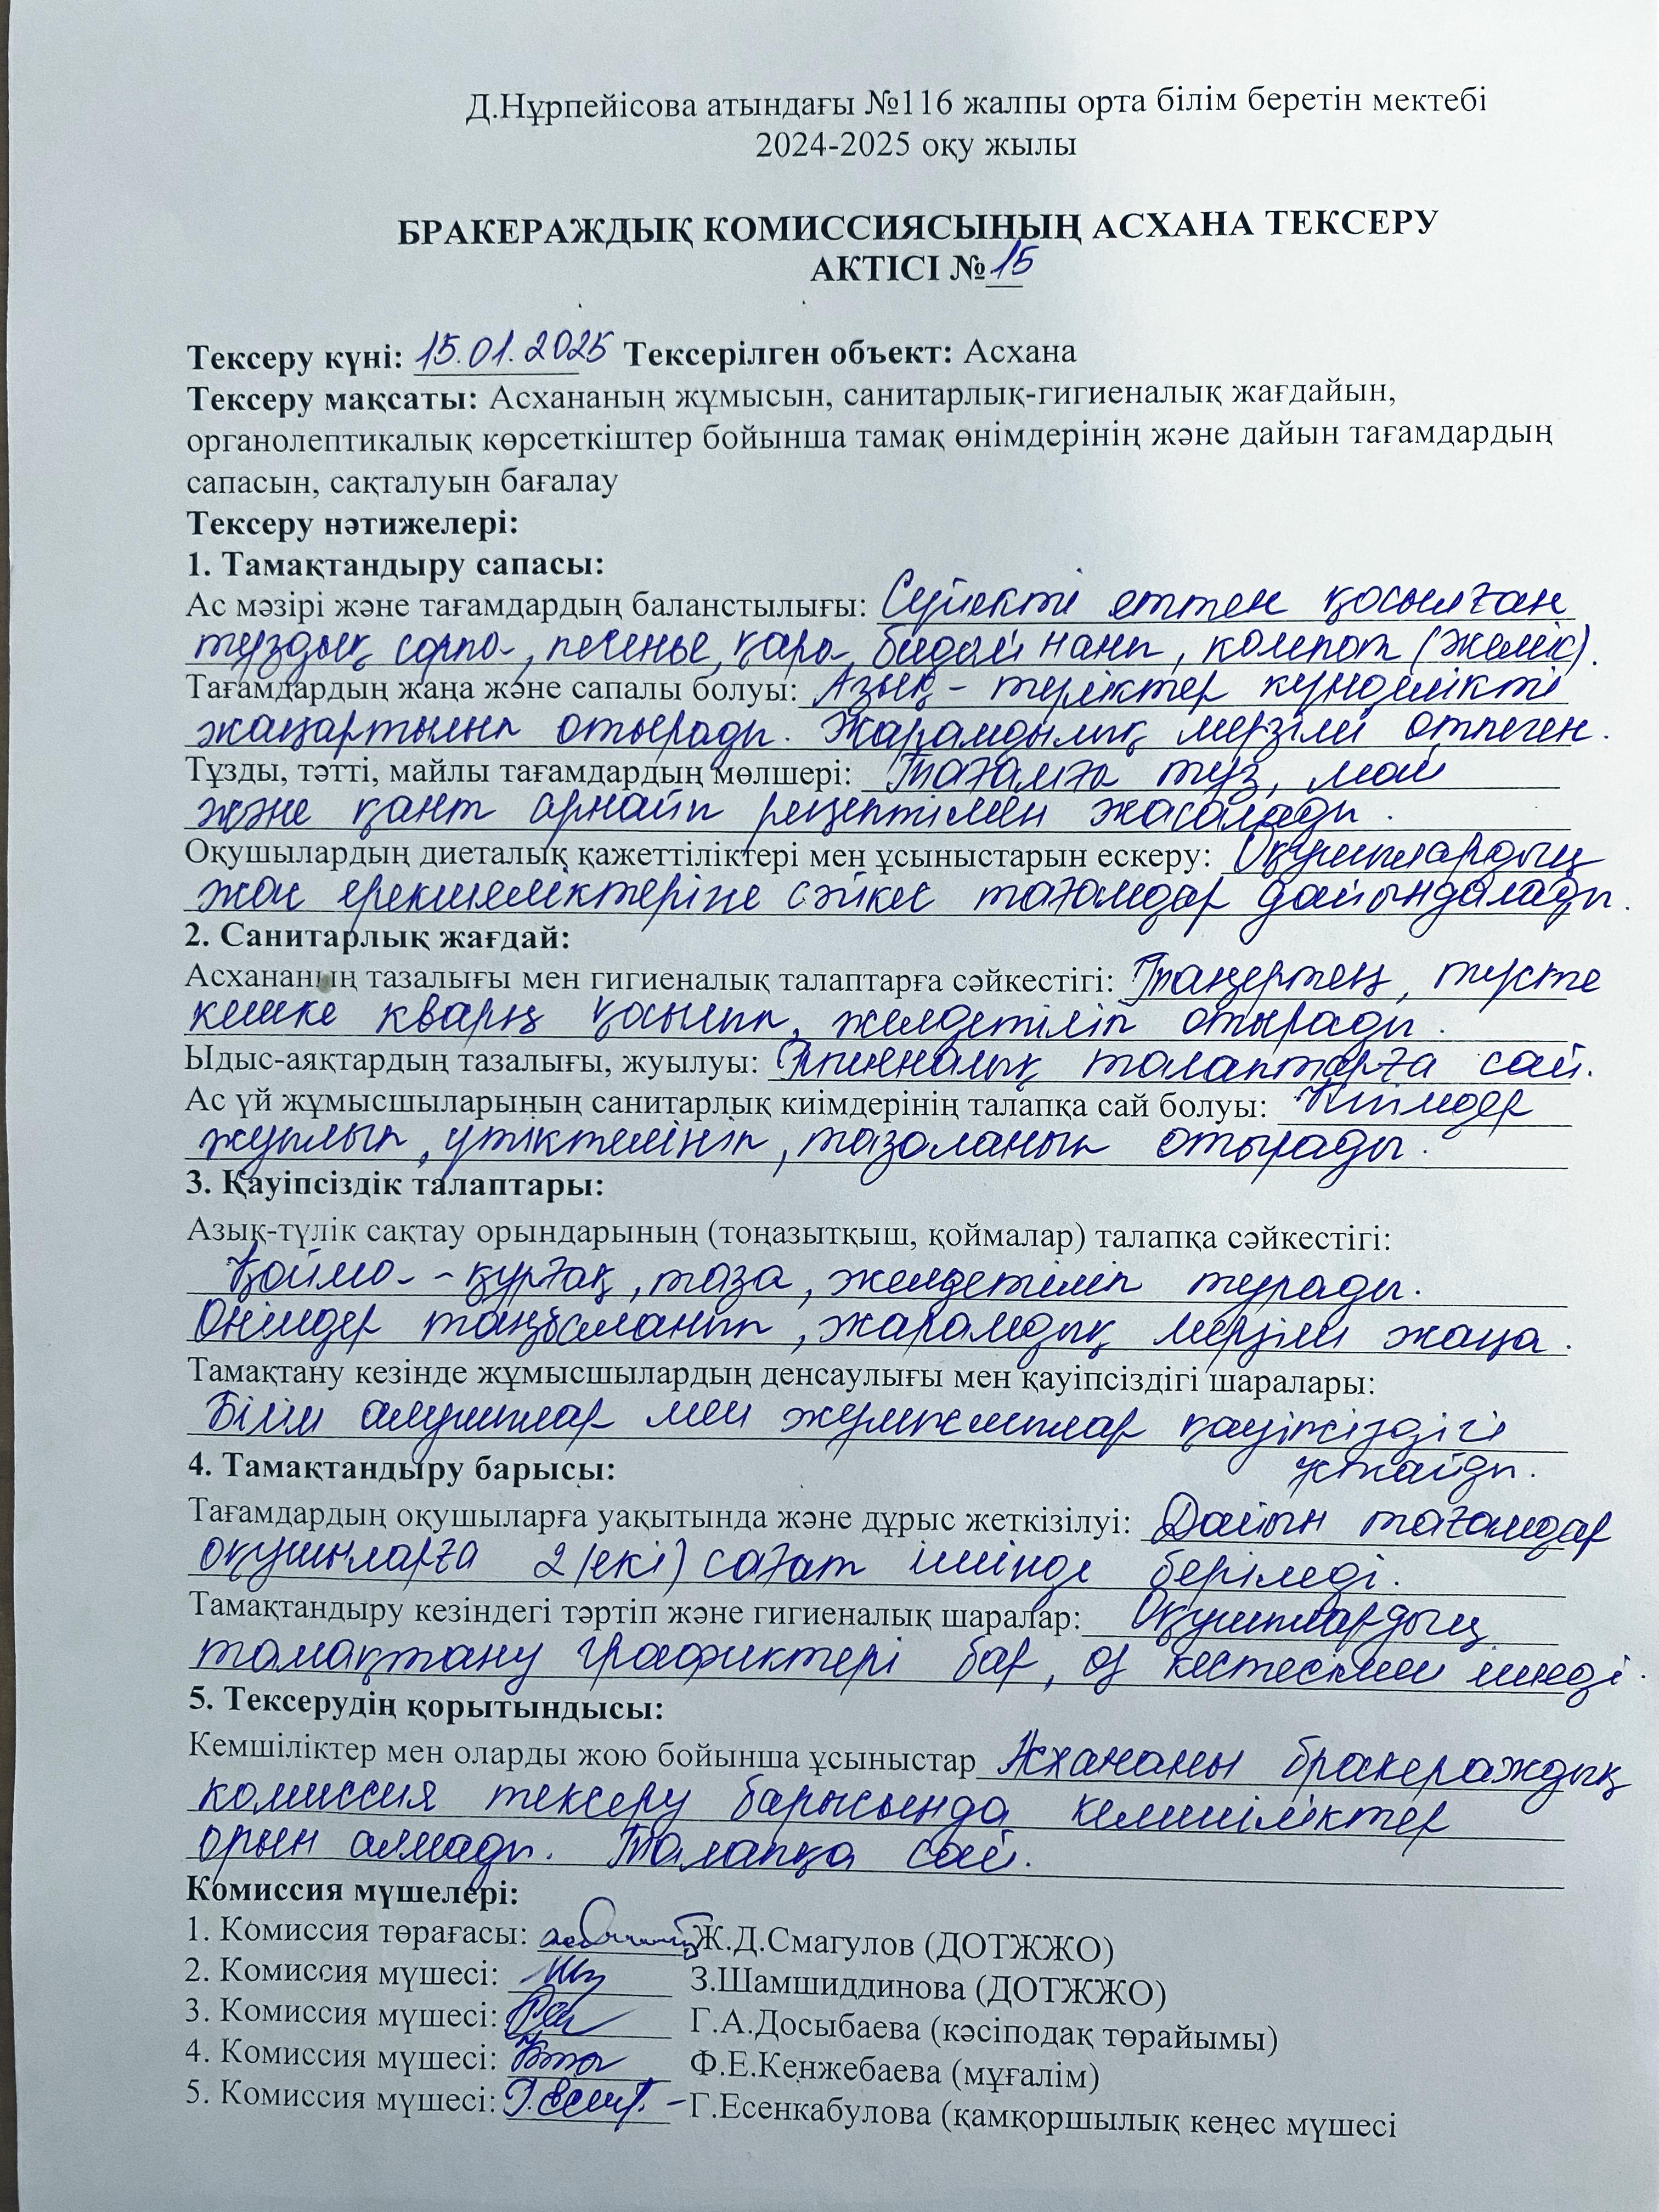 Д.Нұрпейісова атындағы №116 жалпы орта білім беретін мектебі
2024-2025 оқу жылы
БРАКЕРАЖДЫҚ КОМИССИЯСЫНЫҢ АСХАНА ТЕКСЕРУ
АКТІСІ №15
Тексеру күні: 15.01.2025 Тексерілген объект: Асхана
Тексеру мақсаты: Асхананың жұмысын, санитарлық-гигиеналық жағдайын,
органолептикалық көрсеткіштер бойынша тамақ өнімдерінің және дайын тағамдардың
сапасын, сақталуын бағалау
Тексеру нәтижелері:
1. Тамақтандыру сапасы:
Ас мәзірі және тағамдардың баланстылығы: Сүйекті еттен қосылған
тұздық сорпа, печенье, қара бидай нанп, компот (жеміс).
Тағамдардың жаңа және сапалы болуы: Азық-түліктер күнделікті
жаңартылып отырады. Жарамдылық мерзімі өтпеген.
Тұзды, тәтті, майлы тағамдардың мөлшері: Тағамға тұз, май
және қант арнайы рецептімен жасалады.
Оқушылардың диеталық қажеттіліктері мен ұсыныстарын ескеру: Оқушылардың
жас ерекшеліктеріне сәйкес тағамдар дайындалады.
2. Санитарлық жағдай:
Асхананың тазалығы мен гигиеналық талаптарға сәйкестігі: Таңертең, түсте
кешке кварц қосылып, желдетіліп отырады.
Ыдыс-аяқтардың тазалығы, жуылуы: Гигиеналық талаптарға сай.
Ас үй жұмысшыларының санитарлық киімдерінің талапқа сай болуы: Киімдер
жуылып, үтіктелініп, тазаланып отырады.
3. Қауіпсіздік талаптары:
Азық-түлік сақтау орындарының (тоңазытқыш, қоймалар) талапқа сәйкестігі:
Қойма - құрғақ, таза, желдетіліп тұрады.
Өнімдер таңбаланып, жарамдық мерзімі жаңа.
Тамақтану кезінде жұмысшылардың денсаулығы мен қауіпсіздігі шаралары:
Білім алушылар мен жұмысшылар қауіпсіздігі
4. Тамақтандыру барысы:
Тағамдардың оқушыларға уақытында және дұрыс жеткізілуі: Дайын тағамдар
оқушыларға 2 (екі) сағат ішінде беріледі.
Тамақтандыру кезіндегі тәртіп және гигиеналық шаралар: Оқушылардың
тамақтану графиктері бар, өз кестесімен ішеді.
5. Тексерудің қорытындысы:
Кемшіліктер мен оларды жою бойынша ұсыныстар Асхананы бракераждық
комиссия тексеру барысында кемшіліктер
орын алмады. Талапқа сай.
Комиссия мүшелері:
1. Комиссия төрағасы: Ж.Д.Смагулов (ДОТЖЖО)
2. Комиссия мүшесі: З.Шамшиддинова (ДОТЖЖО)
3. Комиссия мүшесі: Г.А.Досыбаева (кәсіподақ төрайымы)
4. Комиссия мүшесі: Ф.Е.Кенжебаева (мұғалім)
5. Комиссия мүшесі: Г.Есенкабулова (қамқоршылық кеңес мүшесі